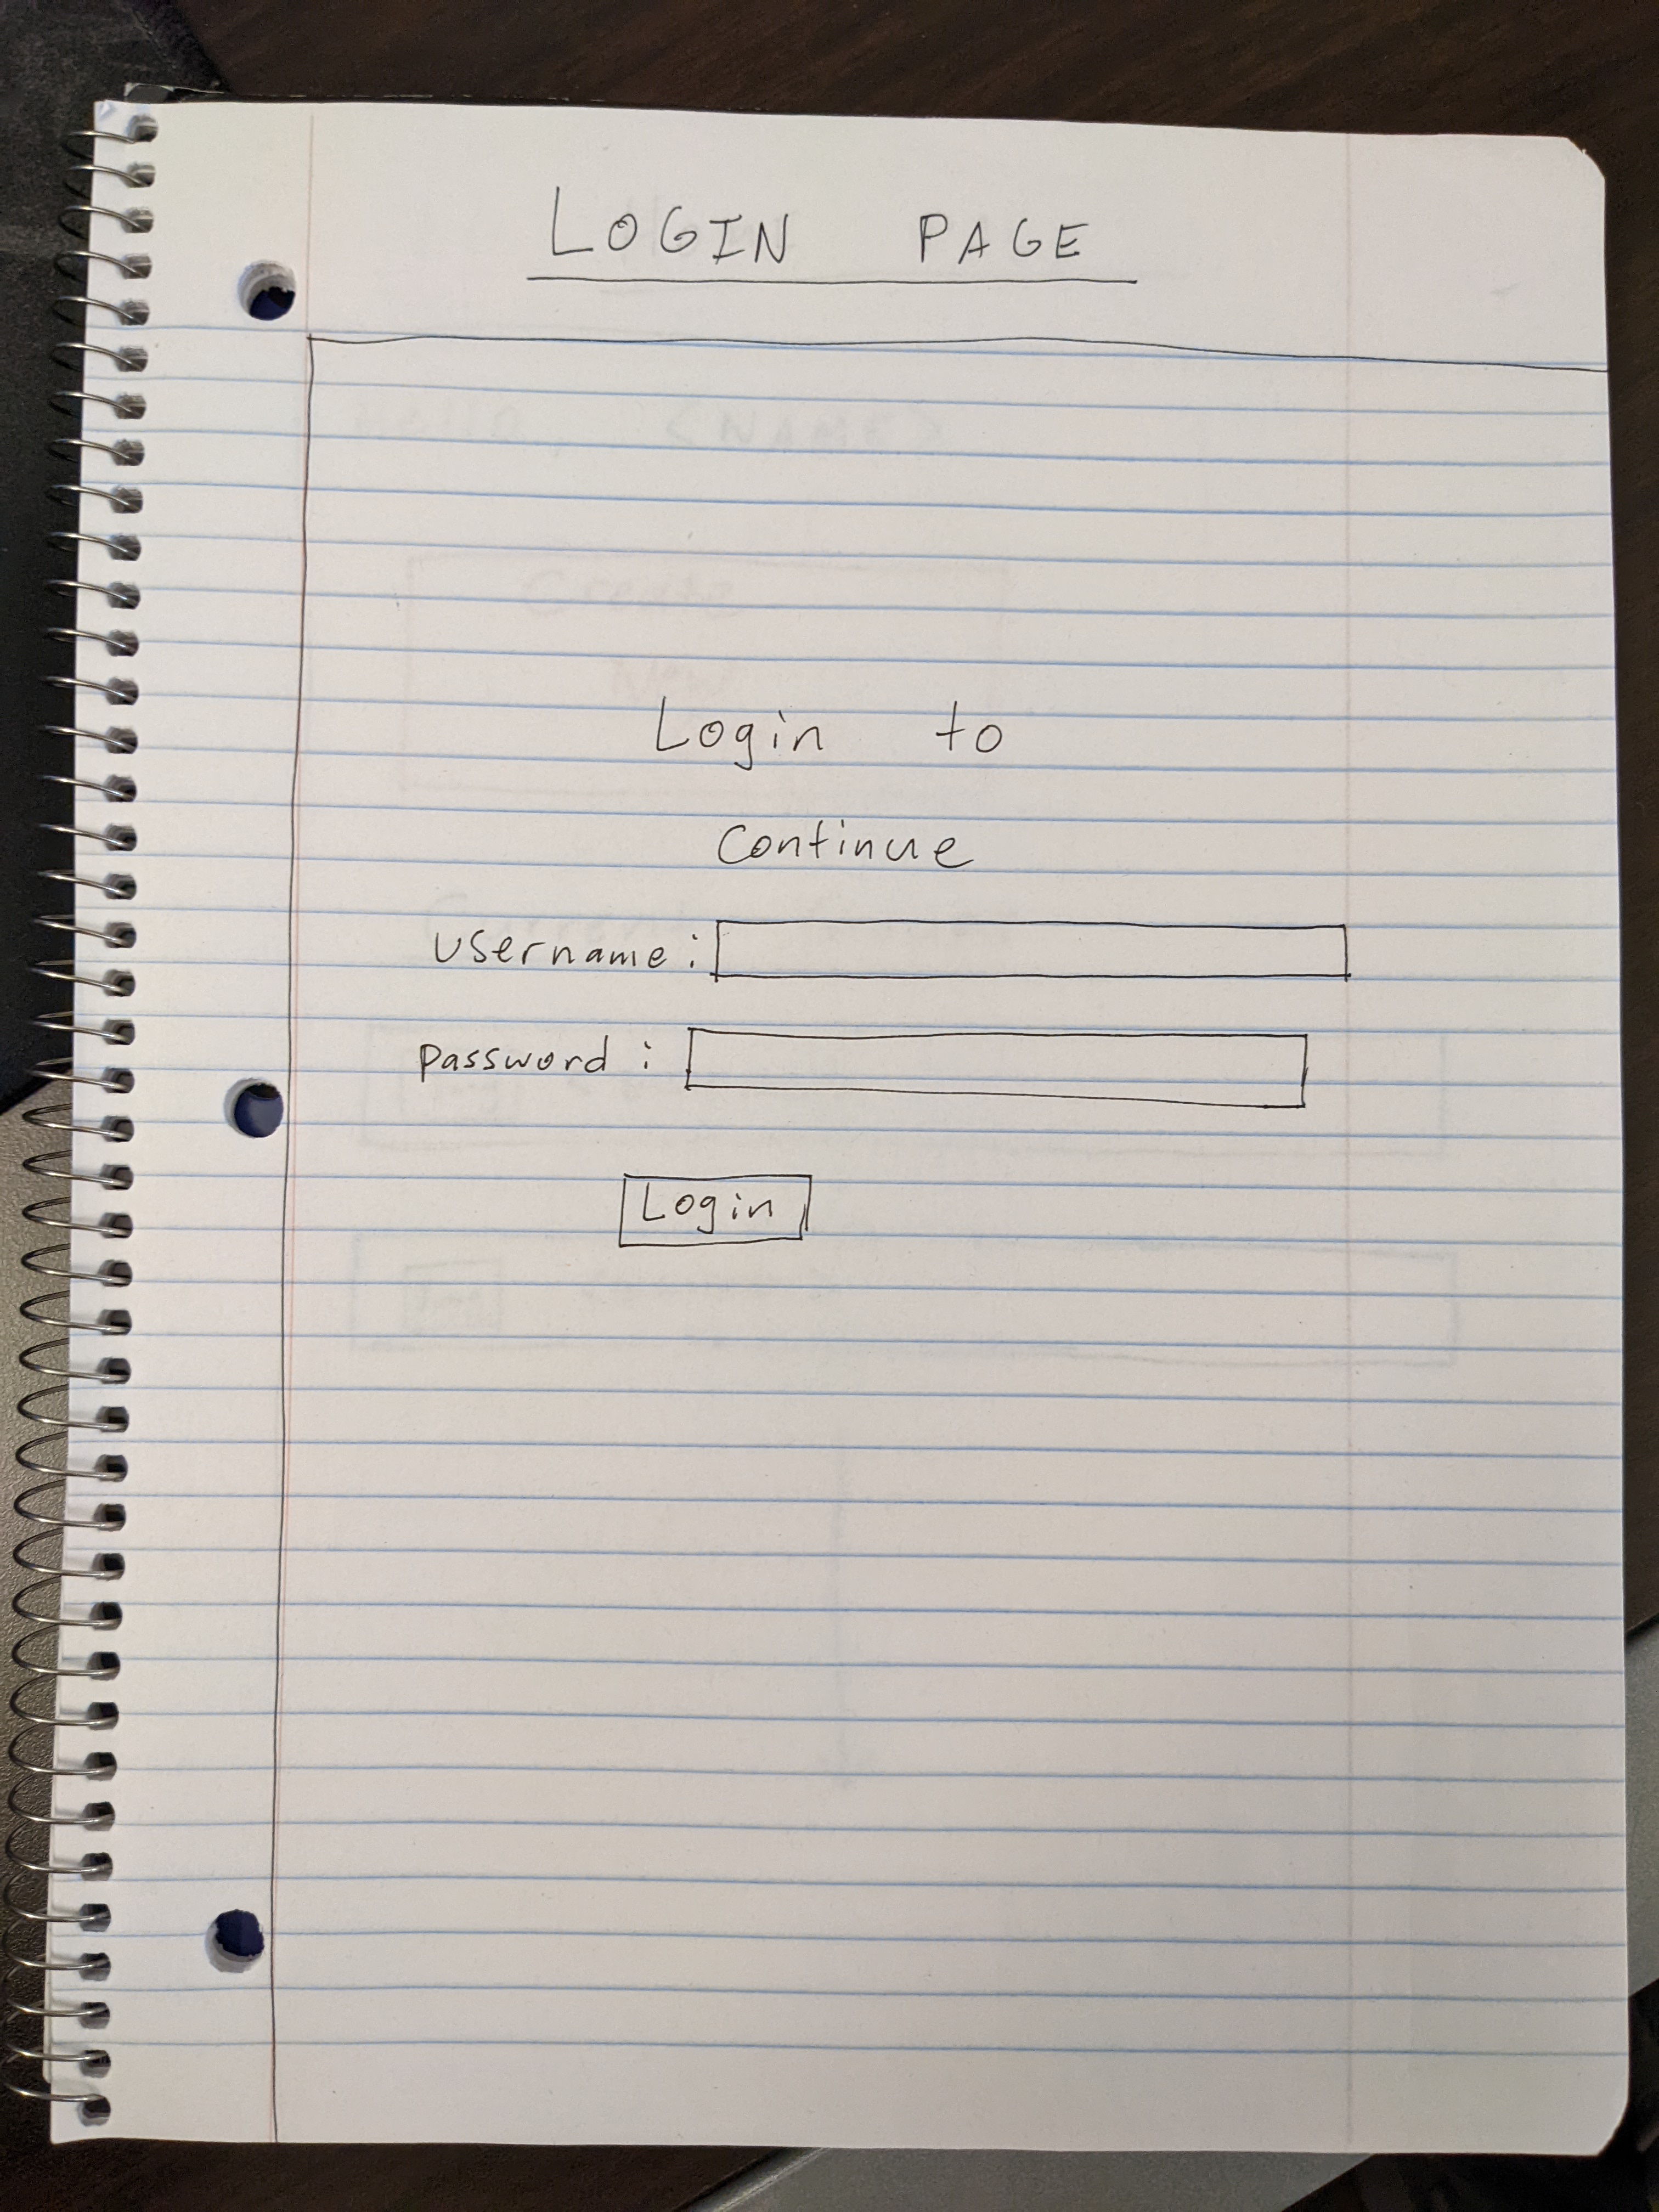 LOGIN PAGE
Login to
Continue
Username:
password:
Login